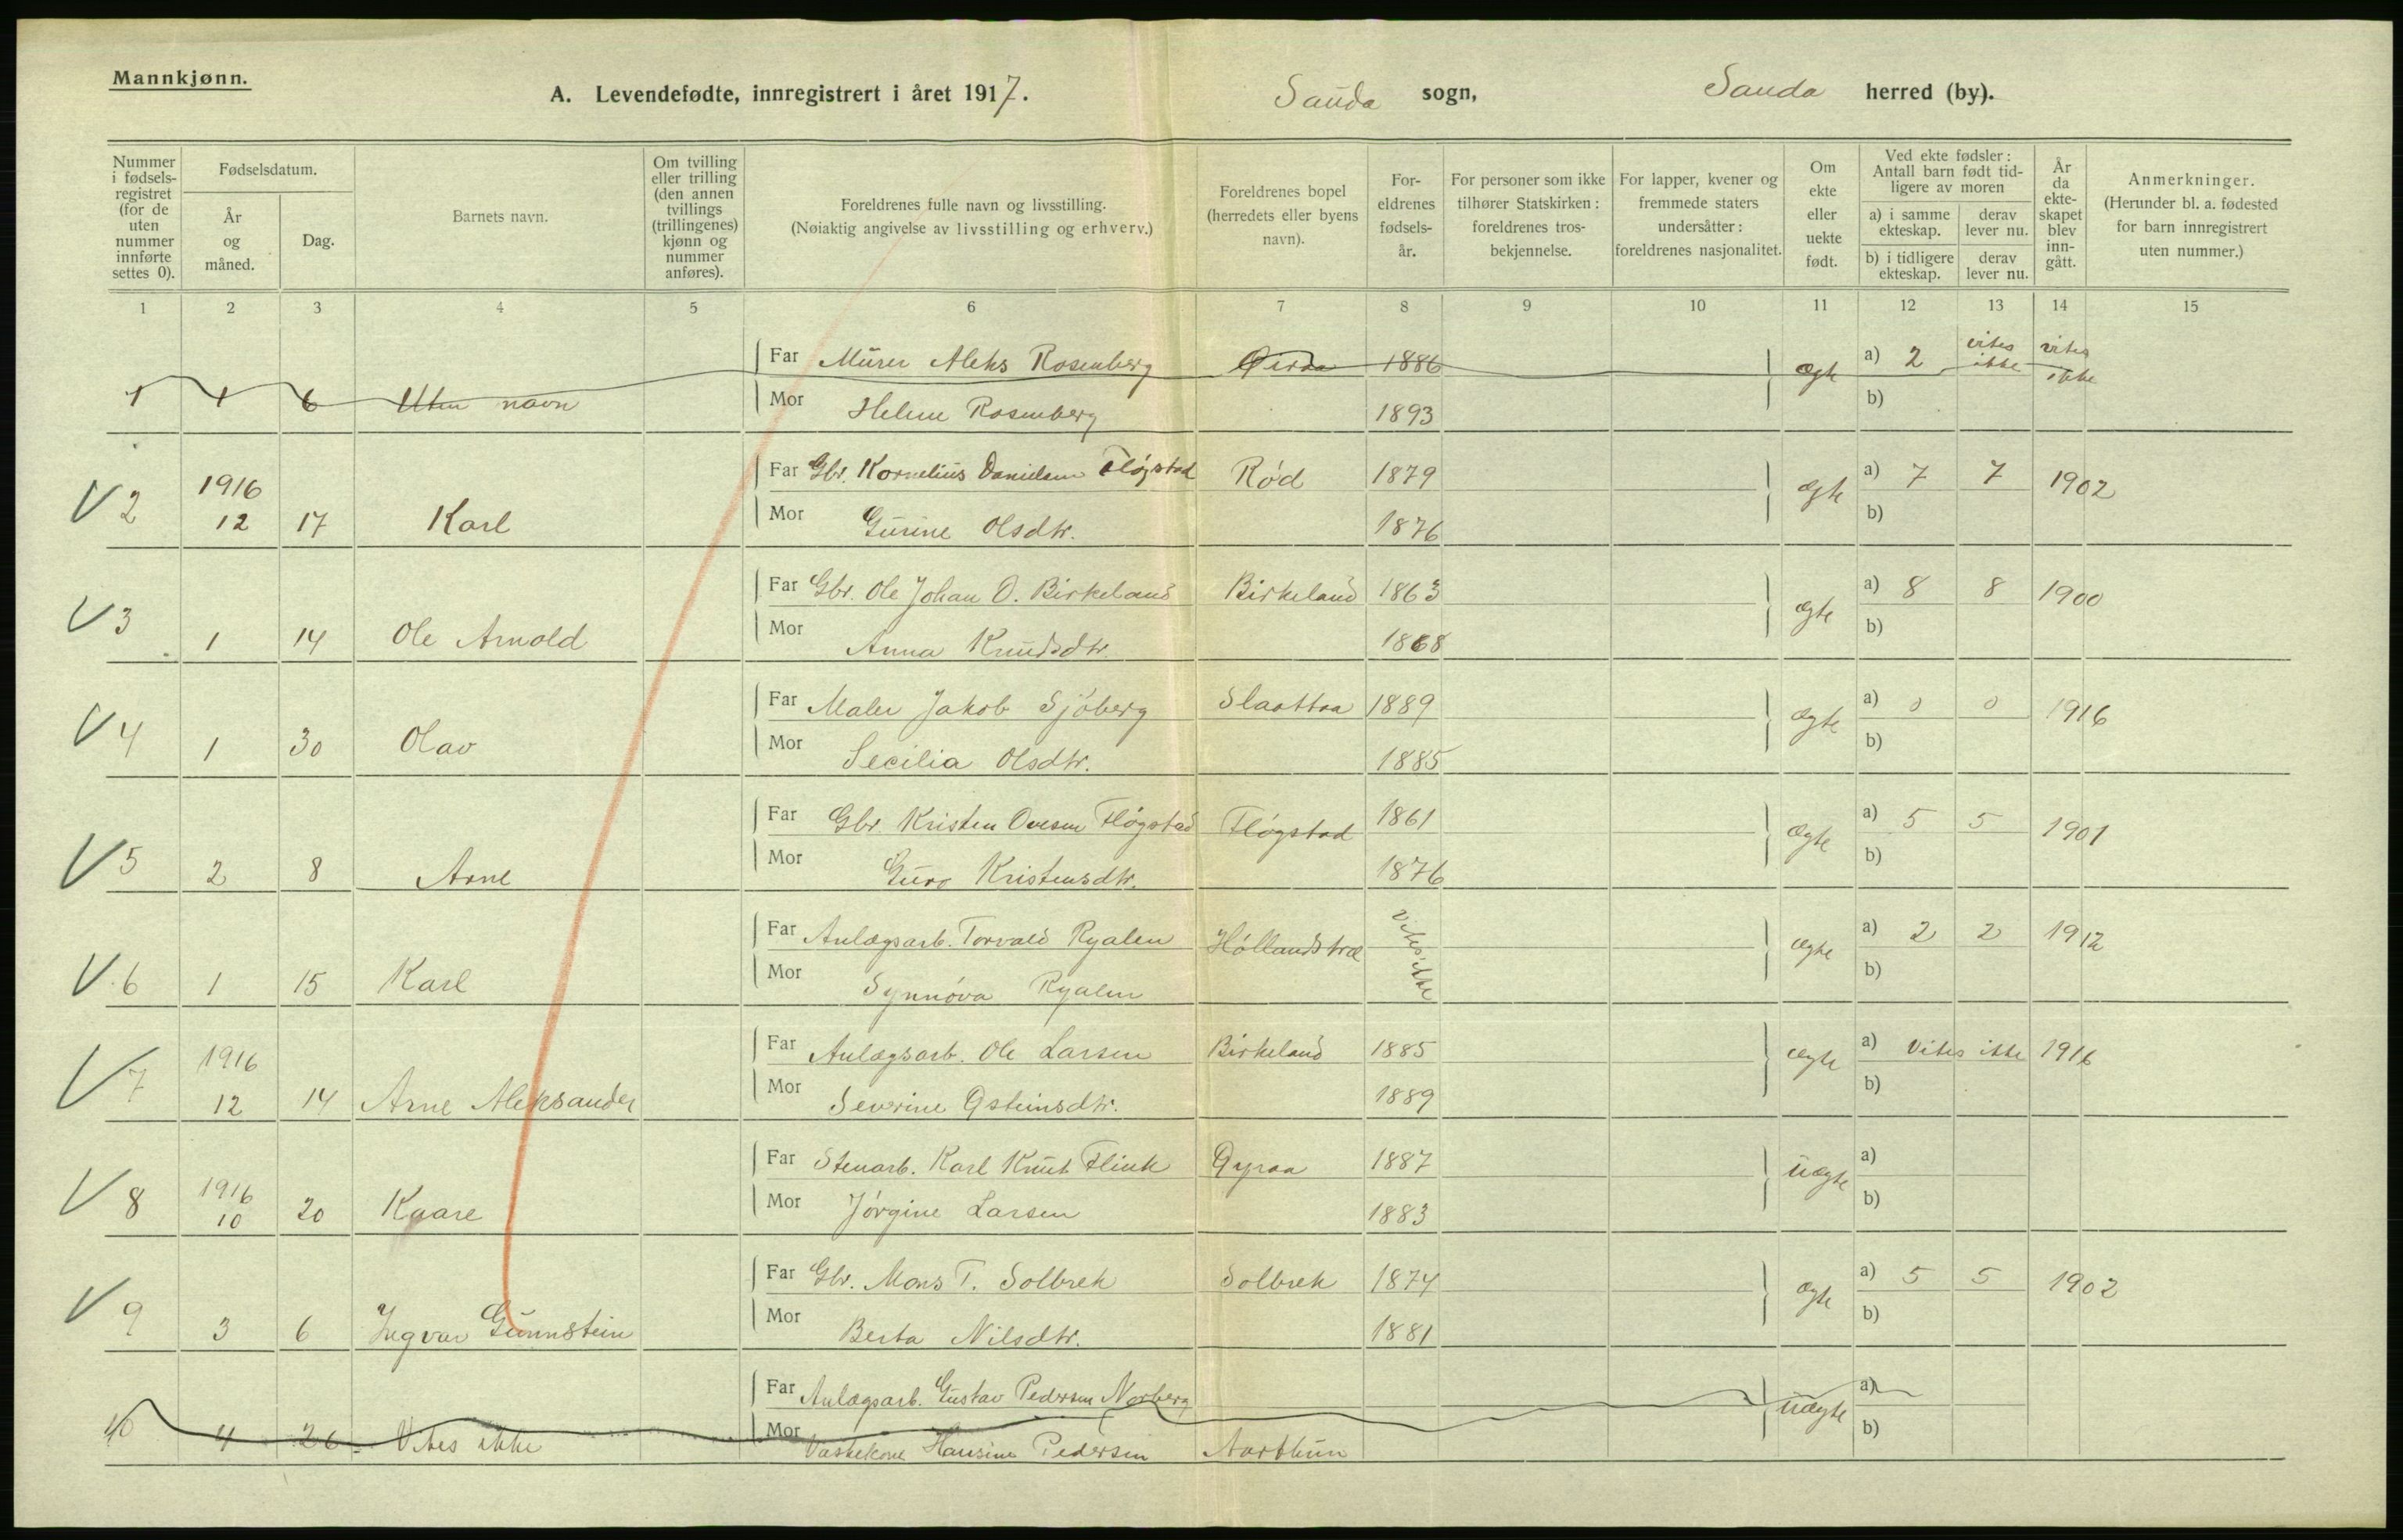 Mannkjønn.
A. Levendefødte, innregistrert i året 1917. Sauda sogn, Sauda herred (by).
Nummer i fødsels-registret (for de uten nummer innførte settes 0).
Fødselsdatum.
År og måned.
Dag.
Barnets navn.
Om tvilling eller trilling (den annen tvillings (trillingenes) kjønn og nummer anføres).
Foreldrenes fulle navn og livsstilling.
(Nøiaktig angivelse av livsstilling og erhverv.)
Foreldrenes bopel (herredets eller byens navn).
For-eldrenes fødsels-år.
For personer som ikke tilhører Statskirken: foreldrenes tros-bekjennelse.
For lapper, kvener og fremmede staters undersåtter: foreldrenes nasjonalitet.
Om ekte eller uekte født.
Ved ekte fødsler: Antall barn født tid-ligere av moren
a) i samme ekteskap. derav lever nu.
b) i tidligere ekteskap. derav lever nu.
År da ekte-skapet blev inn-gått.
Anmerkninger.
(Herunder bl. a. fødested for barn innregistrert uten nummer.)
1 2 3 4 5 6 7 8 9 10 11 12 13 14 15
Far Murer Aleks Rosenberg 1886 a) 2 vites ikke vites ikke
1 1 6 Uten navn Mor Helene Rosenberg 1893 ægte b)
Far Gbr. Kornelius Danielsen Fløgstad Rød 1879 a) 7 7 1902
V 2 1916 12 17 Karl Mor Gurine Olsdtr. 1876 ægte b)
Far Gbr. Ole Johan O. Birkeland Birkeland 1863 a) 8 8 1900
V 3 1 14 Ole Arnold Mor Anna Knudsdtr. 1868 ægte b)
Far Maler Jakob Sjøberg Slaattaa 1889 a) 0 0 1916
V 4 1 30 Olav Mor Secilia Olsdtr. 1885 ægte b)
Far Gbr. Kristen Ovesen Fløgstad Fløgstad 1861 a) 5 5 1901
V 5 2 8 Arne Mor Guro Kristensdtr. 1876 ægte b)
Far Anlægsarb. Torvald Ryalen Høllandstræ vites ikke a) 2 2 1912
V 6 1 15 Karl Mor Synnøva Ryalen ægte b)
Far Anlægsarb. Ole Larsen Birkeland 1885 a) Vites ikke 1916
V 7 1916 12 14 Arne Aleksander Mor Severine Østeinsdtr. 1889 ægte b)
Far Stenarb. Karl Knut Flink Øyraa 1887 a)
V 8 1916 10 20 Kaare Mor Jørgine Larsen 1883 uægte b)
Far Gbr. Mons T. Solbrek Solbrek 1874 a) 5 5 1902
V 9 3 6 Ingvar Gunnstein Mor Berta Nilsdtr. 1881 ægte b)
Far Anlægsarb. Gustav Pedersen Norberg a)
10 4 26 Vites ikke Mor Vaskekone Hansine Pedersen Aarthun uægte b)